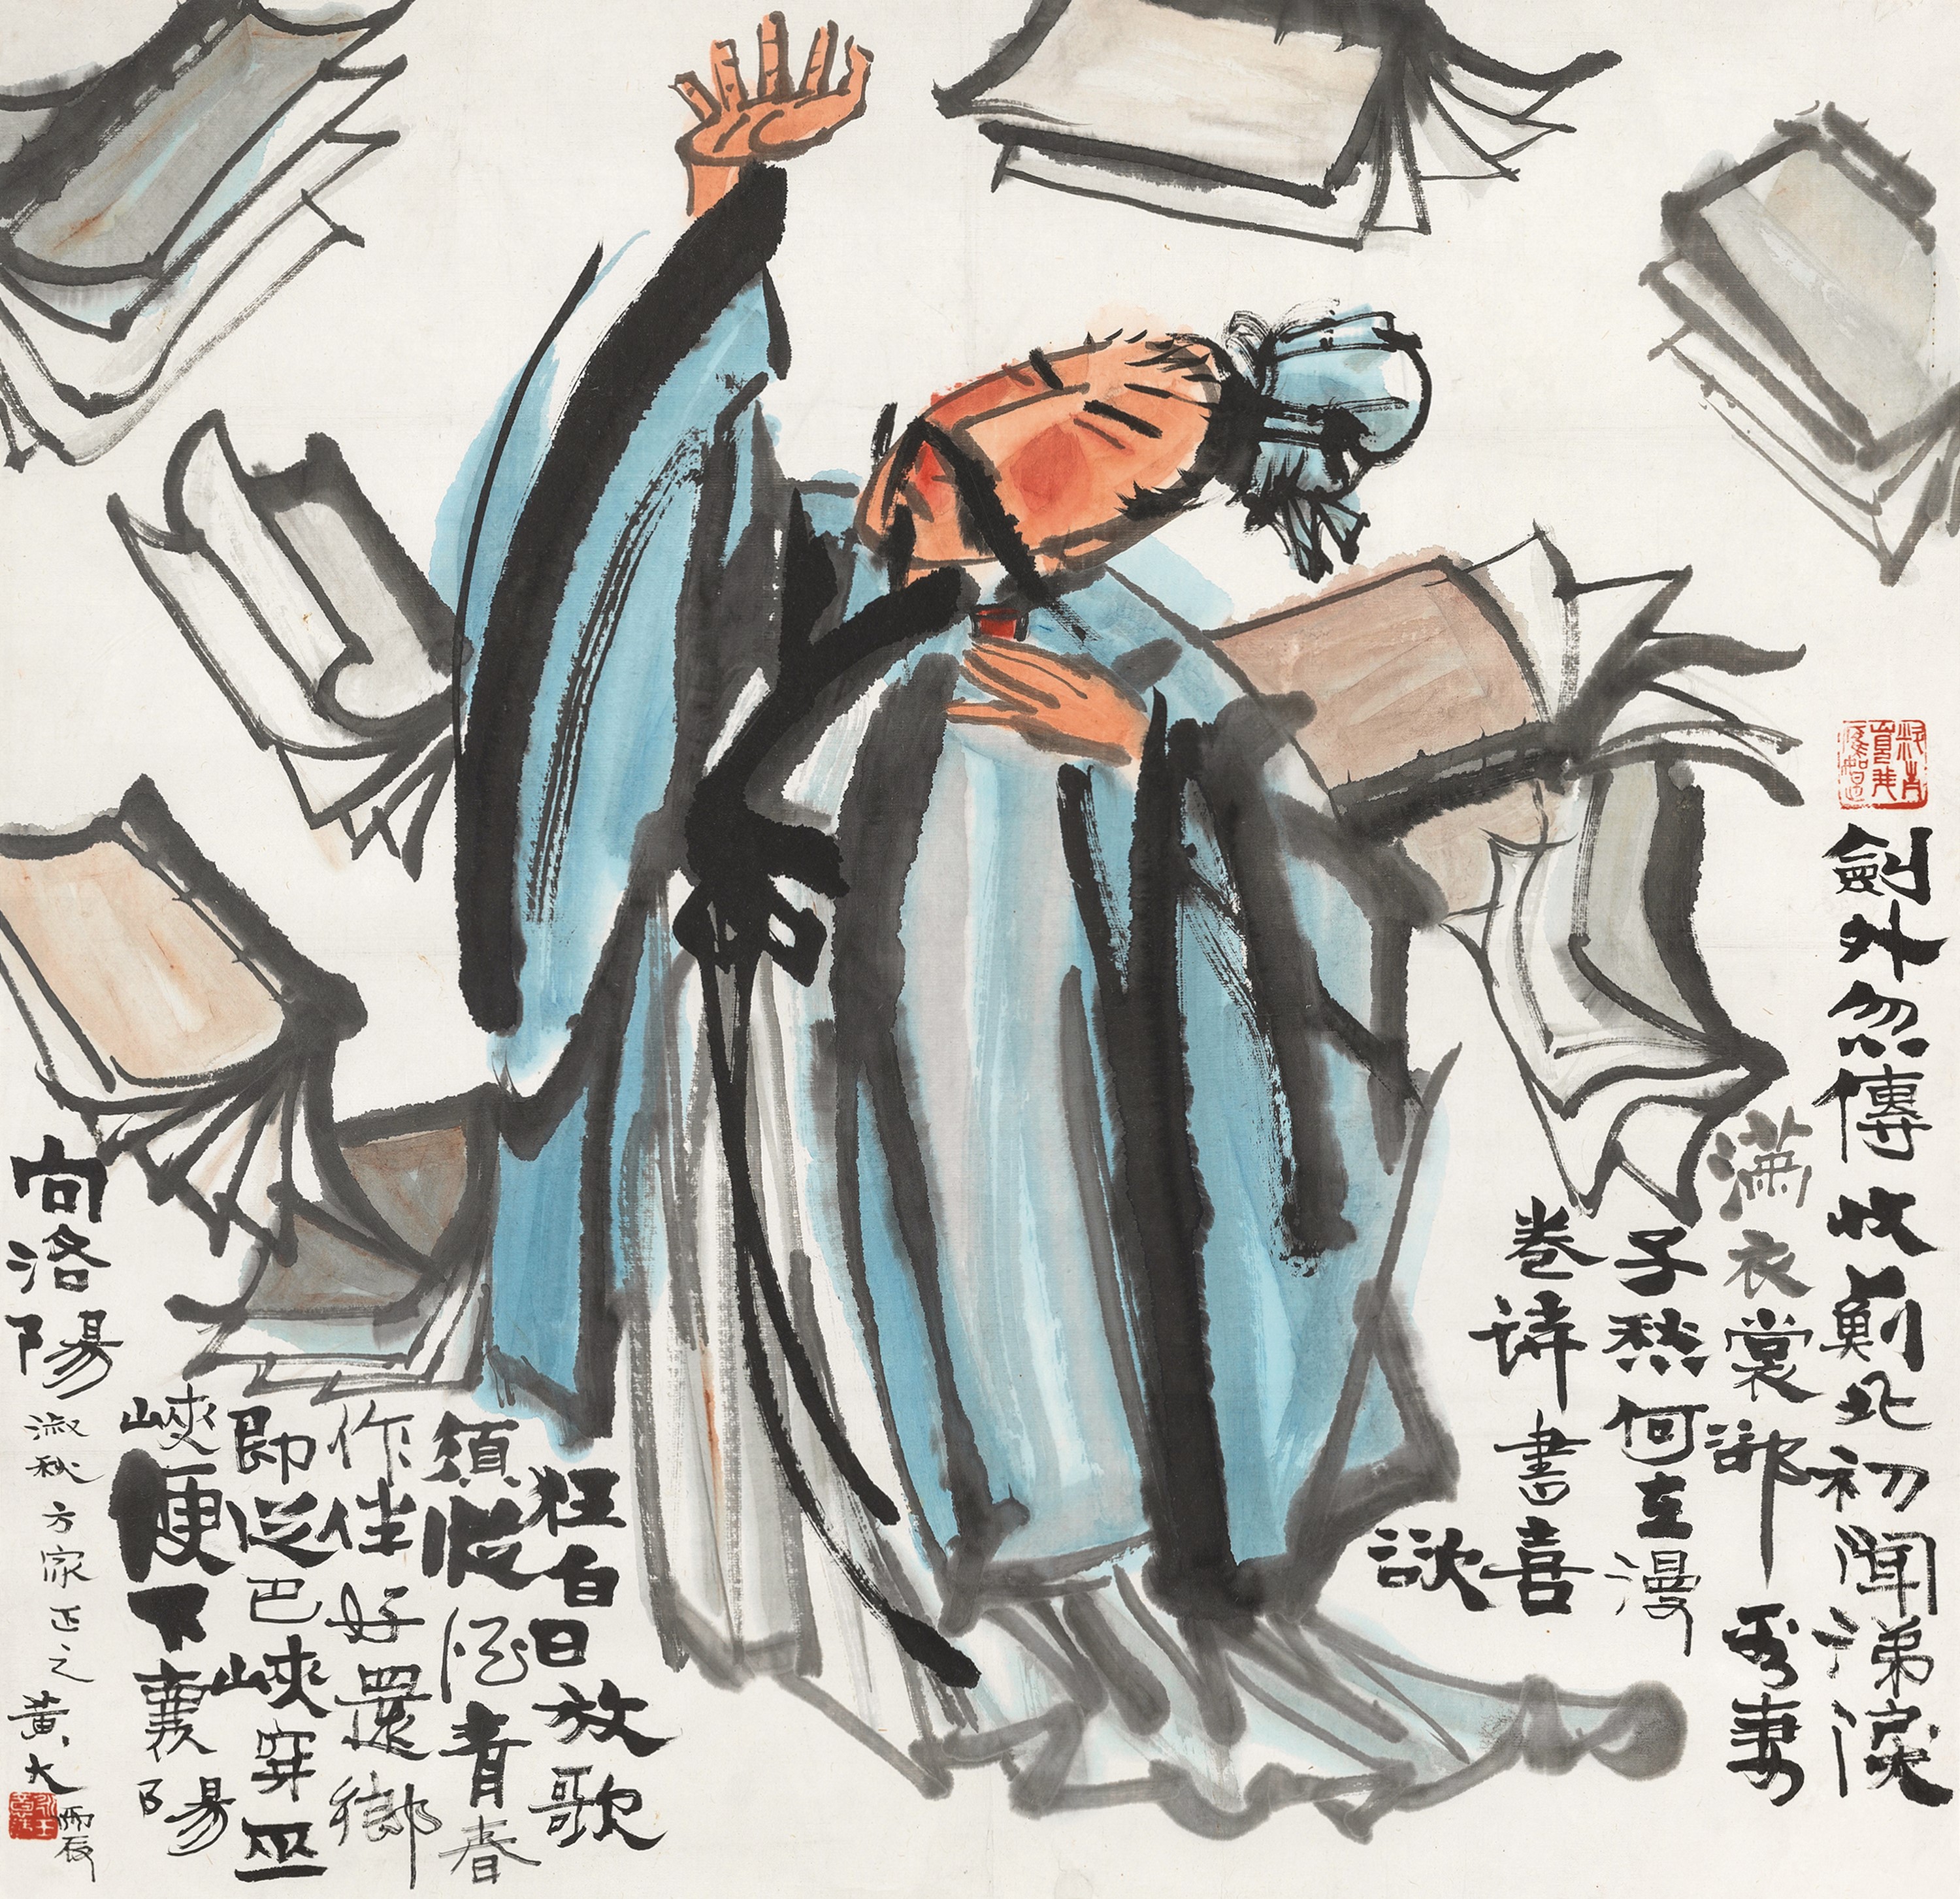 劍外忽傳收薊北初聞涕淚
滿衣裳卻看妻
子愁何在漫
卷詩書喜
欲
狂白日放歌
須縱酒青春
作伴好還鄉
即從巴峽穿巫
峽便下襄陽
向洛陽
淑秋方家正之
黃大